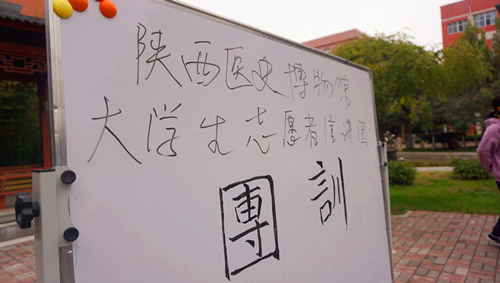 陕西医史博物馆
大学生志愿者宣讲团
團訓